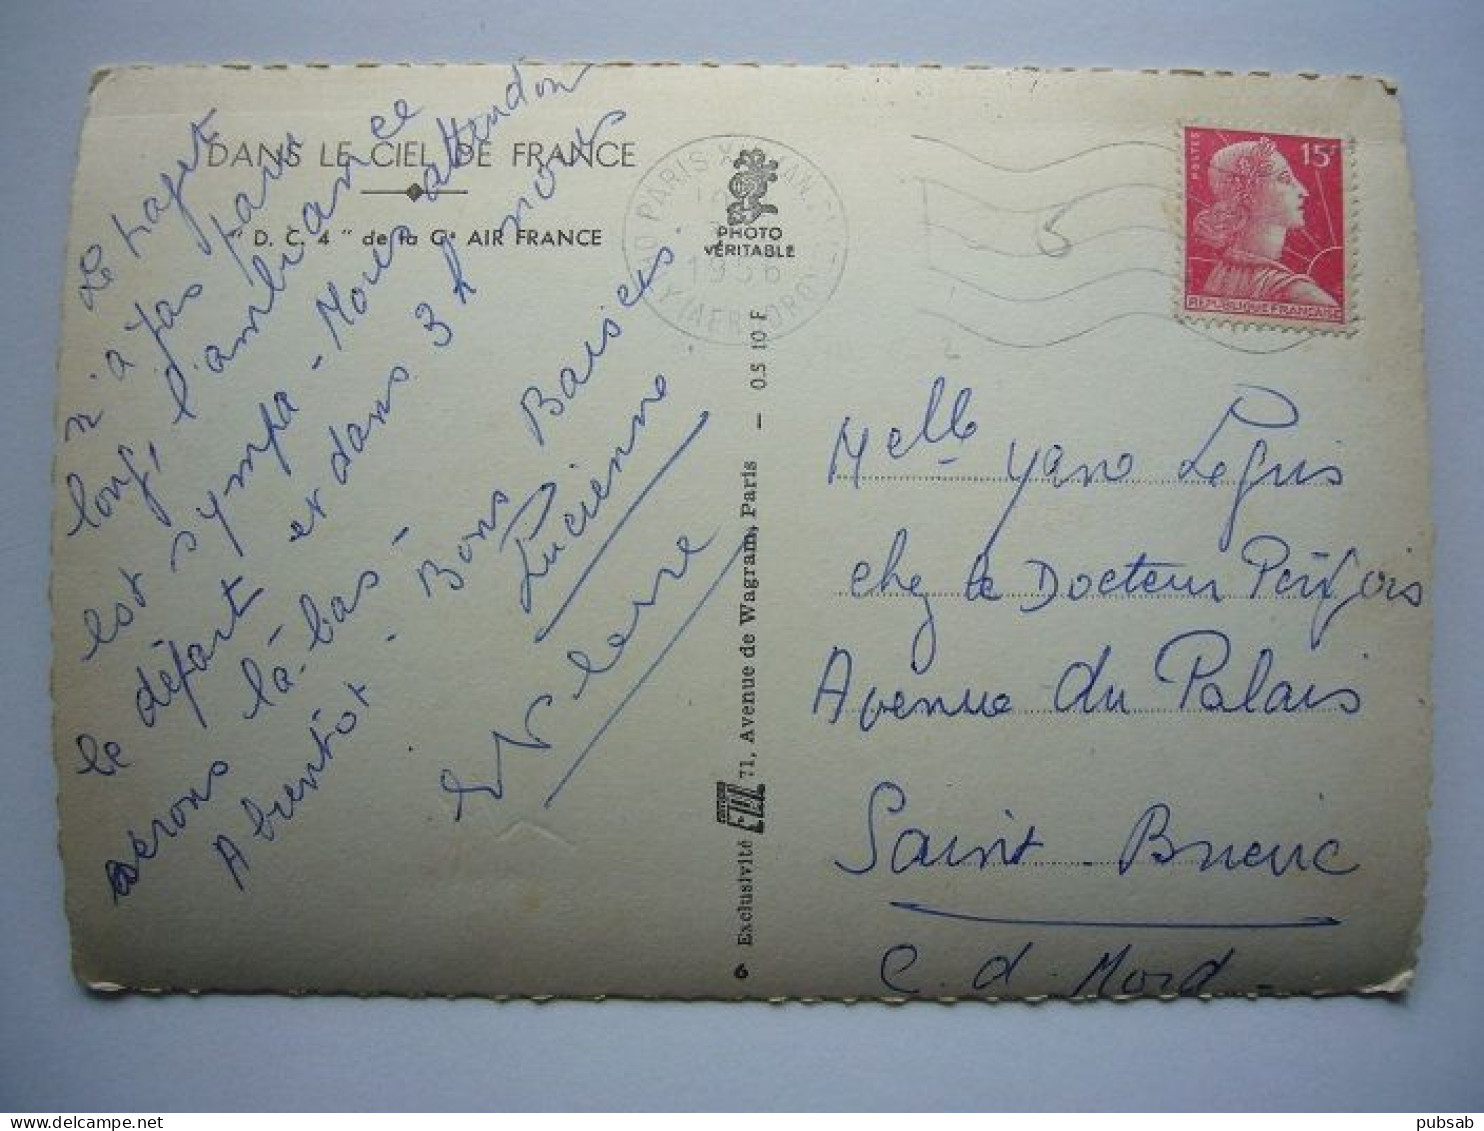 DANS LE CIEL DE FRANCE
" D. C. 4 " de la Cie AIR FRANCE
Le trajet
n'a pas paru
long, l'ambiance
est sympa - Nous attendons
le départ et dans 3h nous
serons là-bas -
A bientôt - Bons Baisers.
Lucienne
PHOTO
VÉRITABLE
PARIS
1956
6 Exclusivité EDITIONS 71, Avenue de Wagram, Paris — O.S 10 E
POSTES
15F
REPUBLIQUE FRANÇAISE
Melle Yano
chez le Docteur
Avenue du Palais
Saint-Brieuc
C. d. Nord -
pubsab